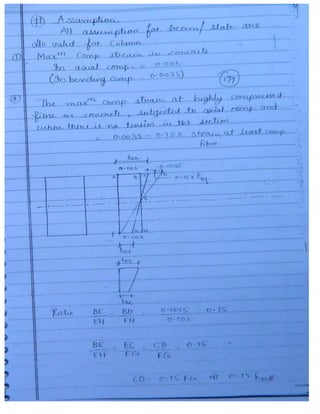 # Assumption
All assumption for beam/ slab are
also valid for Column.
① Maxm Comp strain in concrete
In axial comp. = 0.002
(In bending comp. = 0.0035)
179
② The maxm comp strain at highly compressed
fibre in concrete, subjected to axial comp. and
when there is no tension in the section
= 0.0035 - 0.75 x strain at least comp
fibre.
0.002
0.0035
0.002
Ratio BE/EH = BD/FH = 0.0015/0.002 = 0.75
BE/EH = EC/EG = CD/FG = 0.75
CD = 0.75 FG